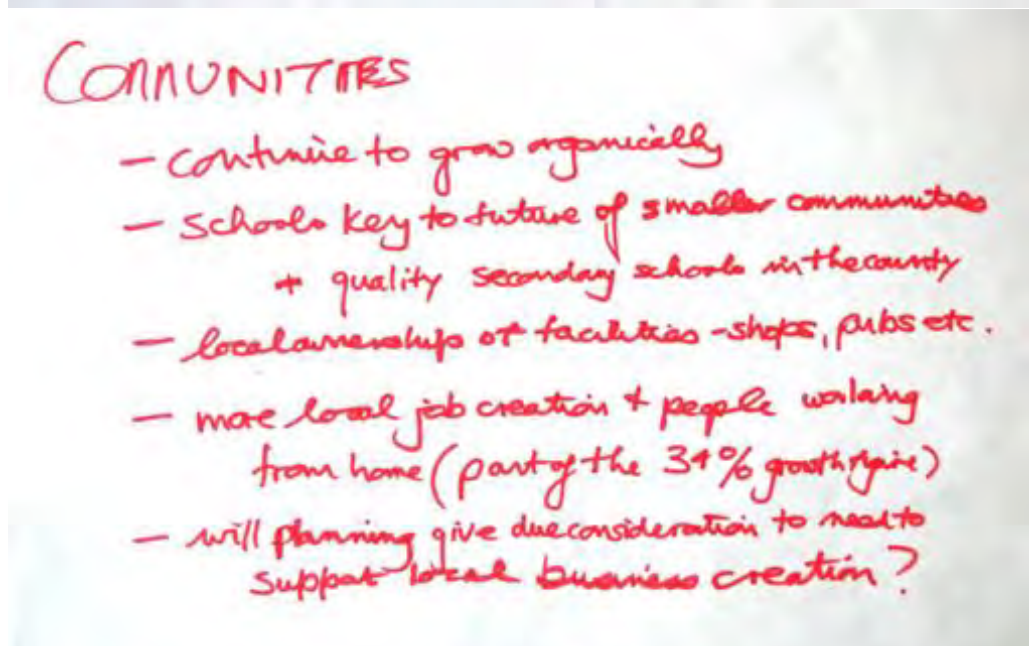 COMMUNITIES
- continue to grow organically
- schools key to future of smaller communities
+ quality secondary schools in the county
- local ownership of facilities - shops, pubs etc.
- more local job creation + people working
from home (part of the 34% growth figure)
- will planning give due consideration to need to
support local business creation?